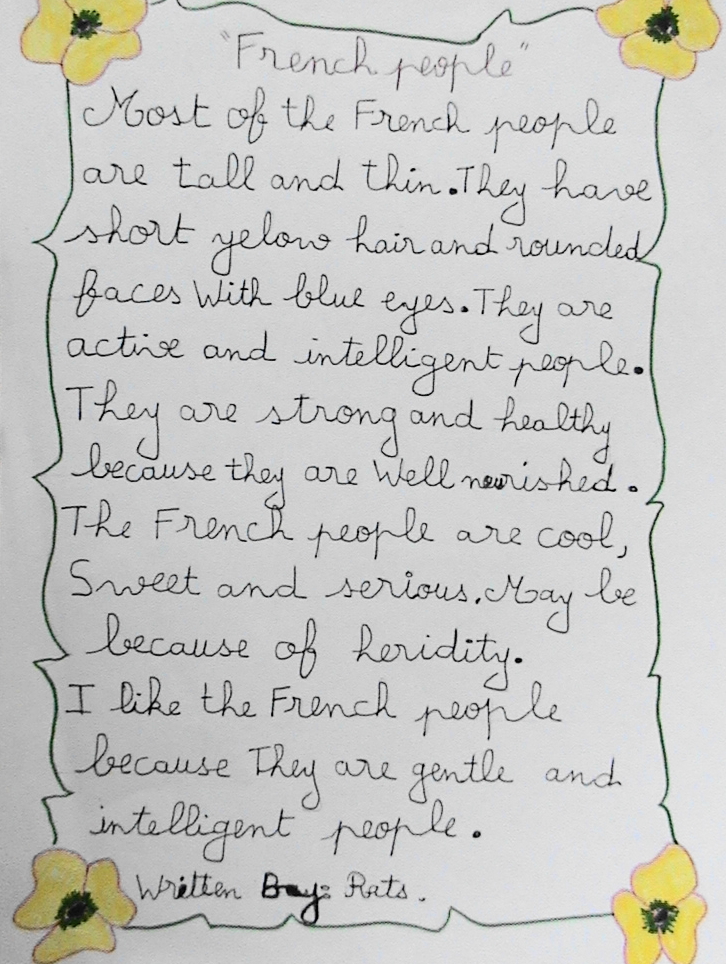 "French people"
Most of the French people
are tall and thin. They have
short yelow hair and rounded
faces With blue eyes. They are
active and intelligent people.
They are strong and healthy
because they are Well nourished.
The French people are cool,
Sweet and serious. May be
because of heridity.
I like the French people
because They are gentle and
intelligent people.
Written By: Rats.